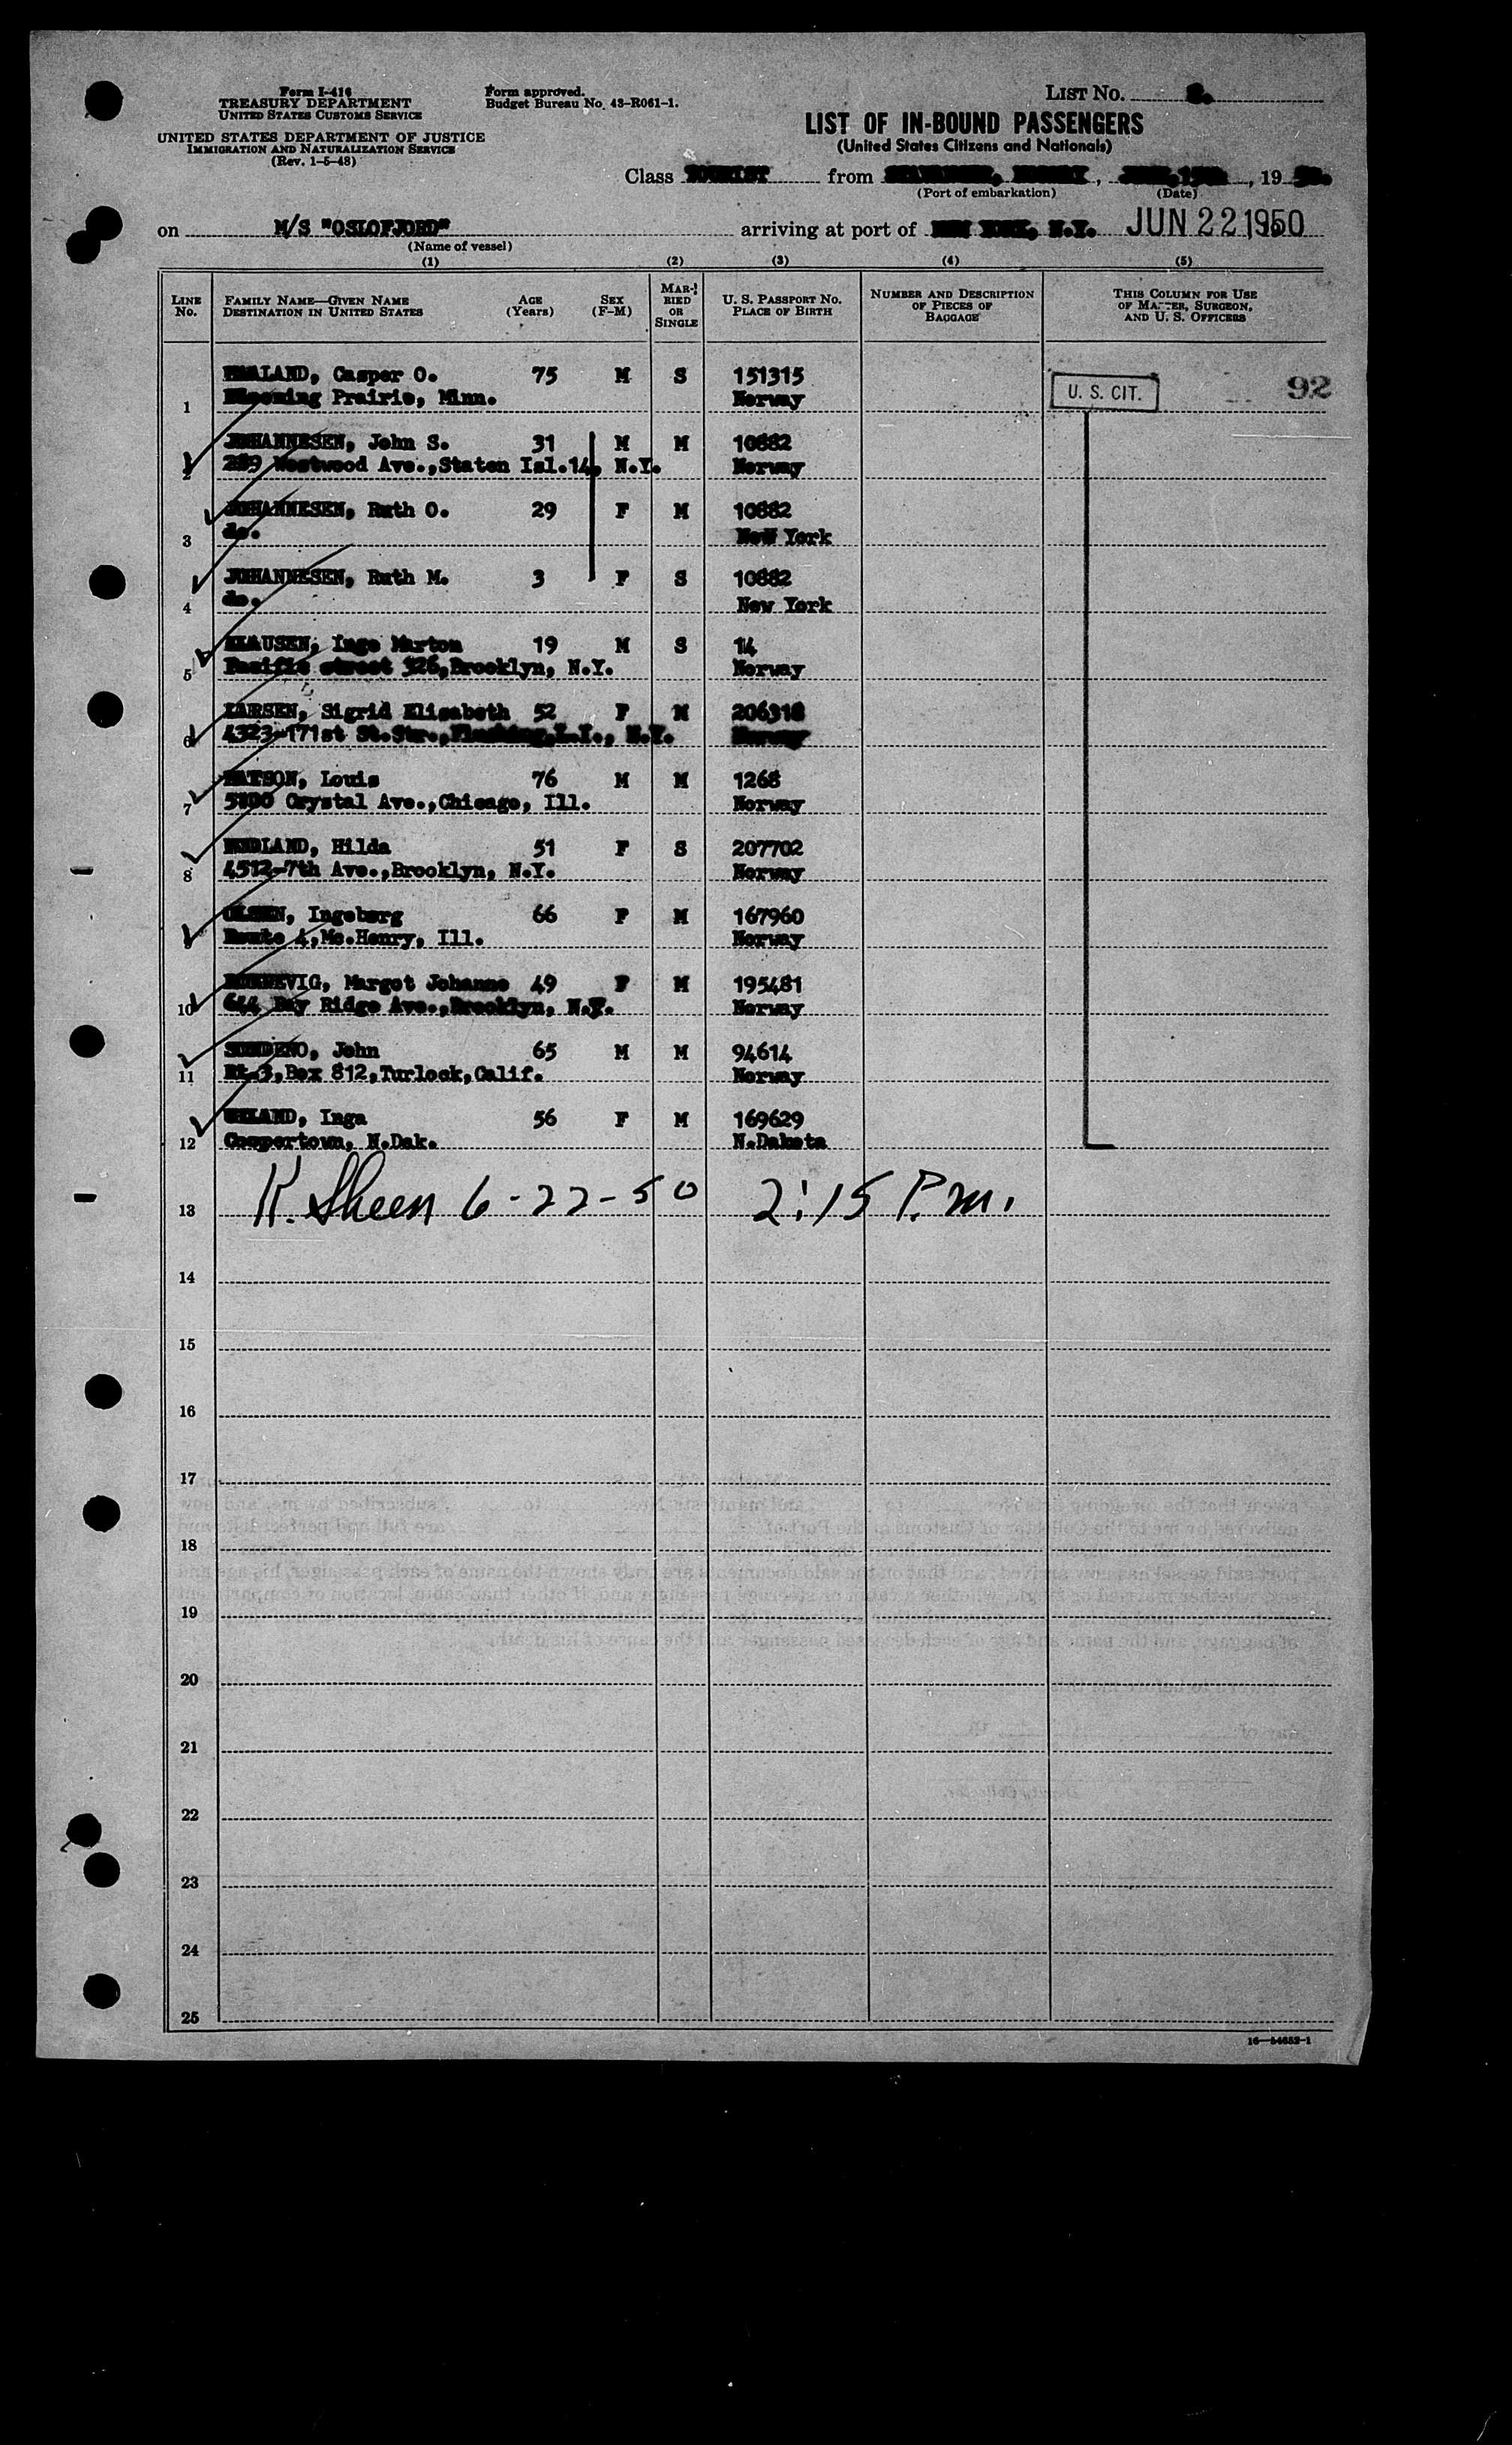 Form I-416
TREASURY DEPARTMENT
UNITED STATES CUSTOMS SERVICE
UNITED STATES DEPARTMENT OF JUSTICE
IMMIGRATION AND NATURALIZATION SERVICE
(Rev. 1-5-48)
Form approved.
Budget Bureau No. 43-R061-1.
LIST No. 8.
LIST OF IN-BOUND PASSENGERS
(United States Citizens and Nationals)
Class TOURIST from STAVANGER, NORWAY, JUNE 13th, 1950.
(Port of embarkation) (Date)
on M/S "OSLOFJORD" arriving at port of NEW YORK, N.Y. JUN 22 1950
(Name of vessel)
(1) (2) (3) (4) (5)
LINE No. FAMILY NAME—GIVEN NAME DESTINATION IN UNITED STATES AGE (Years) SEX (F-M) MARRIED OR SINGLE U. S. PASSPORT No. PLACE OF BIRTH NUMBER AND DESCRIPTION OF PIECES OF BAGGAGE THIS COLUMN FOR USE OF MASTER, SURGEON, AND U. S. OFFICERS
HAALAND, Casper O. 75 M S 151315 U. S. CIT. 92
1 Blooming Prairie, Minn. Norway
JOHANNESEN, John S. 31 M M 10882
2 289 Westwood Ave.,Staten Isl.14, N.Y. Norway
JOHANNESEN, Ruth O. 29 F M 10882
3 do. New York
JOHANNESEN, Ruth M. 3 F S 10882
4 do. New York
KLAUSEN, Inge Marton 19 M S 14
5 Pacific street 326,Brooklyn, N.Y. Norway
LARSEN, Sigrid Elisabeth 52 F M 206318
6 4323-171st St.Str.,Flushing,L.I., N.Y. Norway
MATSON, Louis 76 M M 1268
7 5800 Crystal Ave.,Chicago, Ill. Norway
NODLAND, Hilda 51 F S 207702
8 4512-7th Ave.,Brooklyn, N.Y. Norway
OLSEN, Ingeborg 66 F M 167960
9 Route 4,Mc.Henry, Ill. Norway
Margot Johanne 49 F M 195481
10 644 Bay Ridge Ave.,Brooklyn, N.Y. Norway
John 65 M M 94614
11 Rt.3,Box 812,Turlock,Calif. Norway
Inga 56 F M 169629
12 Coopertown, N.Dak. N.Dakota
13 K. Sheen 6-22-50 2:15 P.m.
14
15
16
17
18
19
20
21
22
23
24
25
16—54652-1